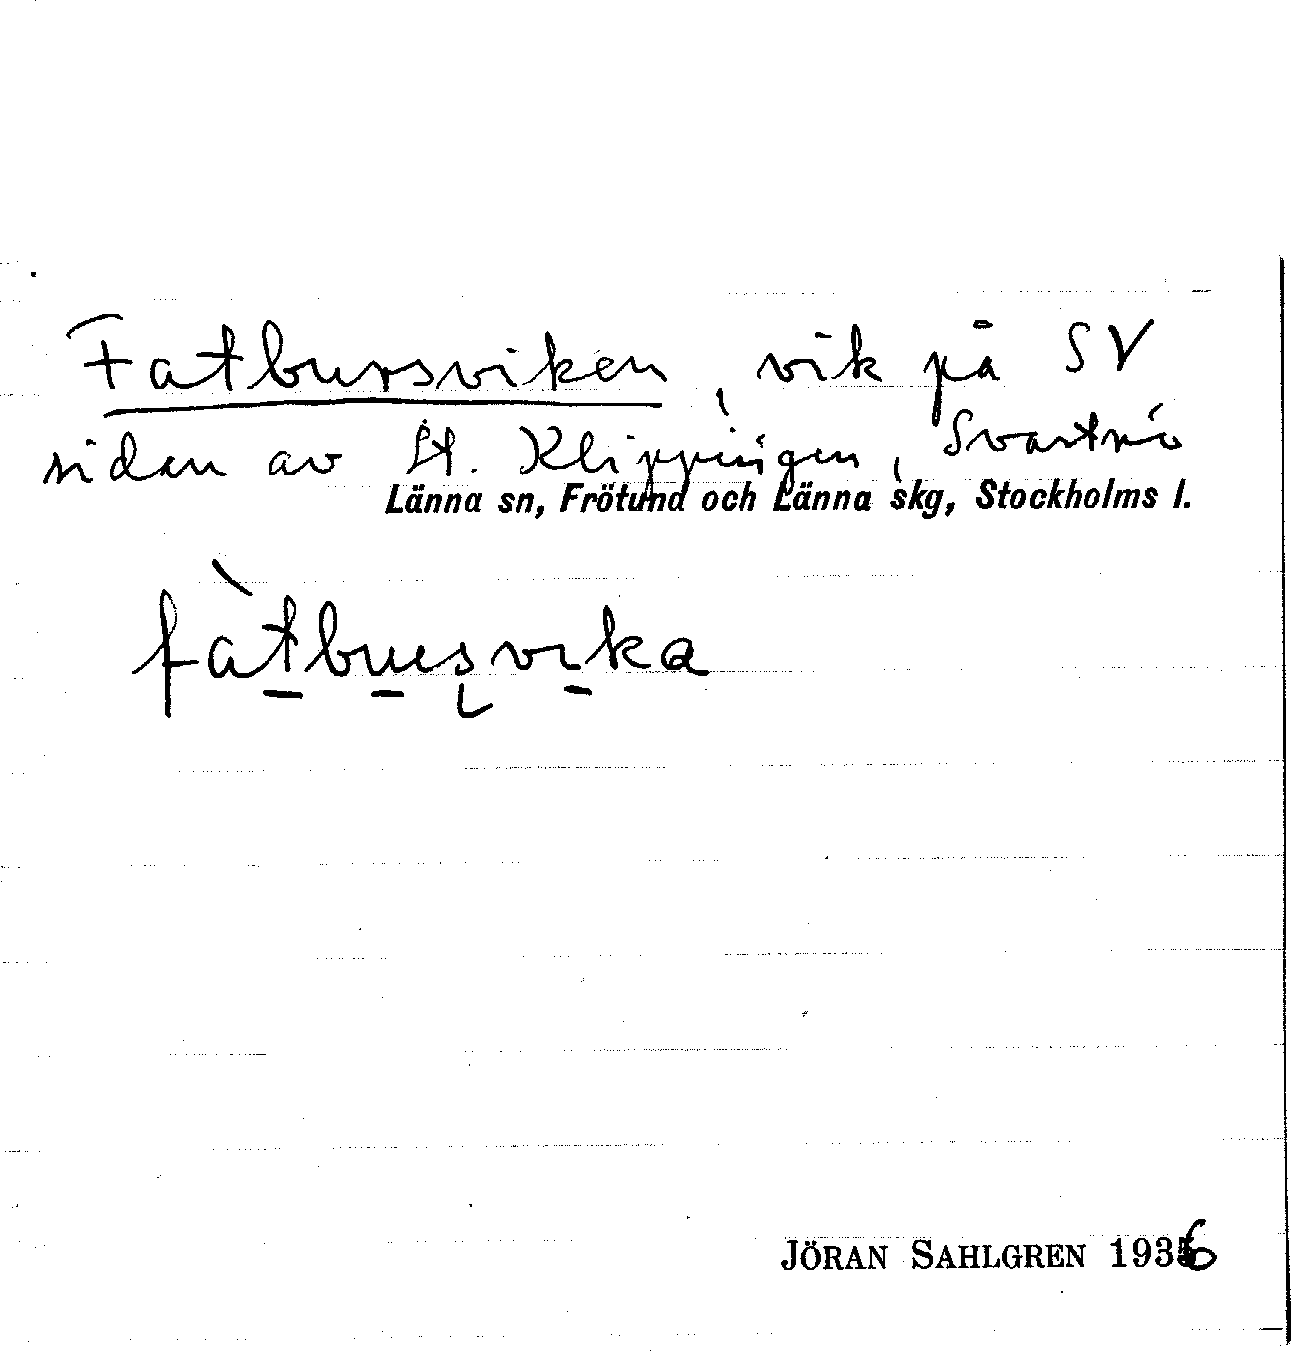 Fatbursviken, vik på SV
sidan av St. Klippingen, Svartnö
Länna sn, Frötuna och Länna skg, Stockholms l.
fàtbusvika
JÖRAN SAHLGREN 1936